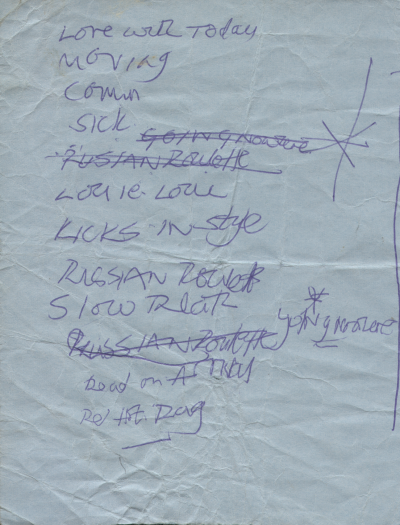 Love will Today
MOVING
Comin
SICK
GOING NOWHERE
RUSIAN ROULETTE
LOUIE-LOUIE
KICKS IN Style
RUSSIAN ROULETTE
Slow Death
RUSSIAN ROULETTE GOING NOWHERE
Dead on A
Red Hot Rag